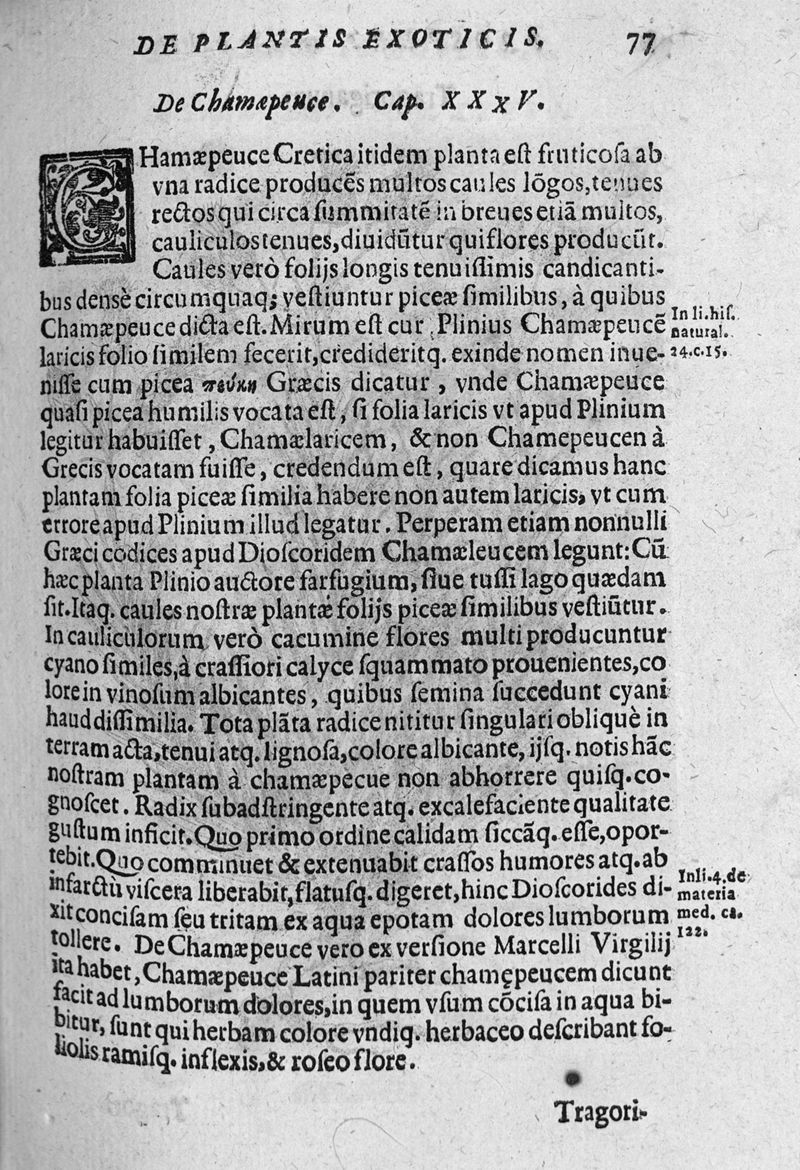 DE PLANTIS EXOTICIS. 77
De Chamæpeuce. Cap. XXXV.
CHamæpeuce Cretica itidem planta eſt fruticoſa ab
vna radice producẽs multos caules lõgos, tenues
rectos qui circa ſummitatẽ in breues etiã multos,
cauliculos tenues, diuidũtur qui flores producũt.
Caules verò folijs longis tenuiſſimis candicanti-
bus densè circumquaq; veſtiuntur piceæ ſimilibus, à quibus
Chamæpeuce dicta eſt. Mirum eſt cur Plinius Chamæpeucẽ
In li. hiſ.
natural.
24. c. 15.
laricis folio ſimilem fecerit, credideritq. exinde nomen inue-
niſſe cum picea πεύκη Græcis dicatur, vnde Chamæpeuce
quaſi picea humilis vocata eſt, ſi folia laricis vt apud Plinium
legitur habuiſſet, Chamælaricem, & non Chamepeucen à
Grecis vocatam fuiſſe, credendum eſt, quare dicamus hanc
plantam folia piceæ ſimilia habere non autem laricis, vt cum
errore apud Plinium illud legatur. Perperam etiam nonnulli
Græci codices apud Dioſcoridem Chamæleucem legunt: Cũ
hæc planta Plinio auctore farfugium, ſiue tuſſilago quædam
ſit. Itaq. caules noſtræ plantæ folijs piceæ ſimilibus veſtiũtur.
In cauliculorum verò cacumine flores multi producuntur
cyano ſimiles, à craſſiori calyce ſquammato prouenientes, co
lore in vinoſum albicantes, quibus ſemina ſuccedunt cyani
haud diſſimilia. Tota plãta radice nititur ſingulari obliquè in
terram acta, tenui atq. lignoſa, colore albicante, ijſq. notis hãc
noſtram plantam à chamæpecue non abhorrere quiſq. co-
gnoſcet. Radix ſubadſtringente atq. excalefaciente qualitate
guſtum inficit. Quo primo ordine calidam ſiccãq. eſſe, opor-
tebit. Quo comminuet & extenuabit craſſos humores atq. ab
infarctũ viſcera liberabit, flatuſq. digeret, hinc Dioſcorides di-
In li. 4. de
materia
med. ca.
122.
xit conciſam ſeu tritam ex aqua epotam dolores lumborum
tollere. De Chamæpeuce vero ex verſione Marcelli Virgilij
ita habet, Chamæpeuce Latini pariter chamępeucem dicunt
facit ad lumborum dolores, in quem vſum cõciſa in aqua bi-
bitur, ſunt qui herbam colore vndiq. herbaceo deſcribant fo-
liolis ramiſq. inflexis, & roſeo flore.
Tragori-